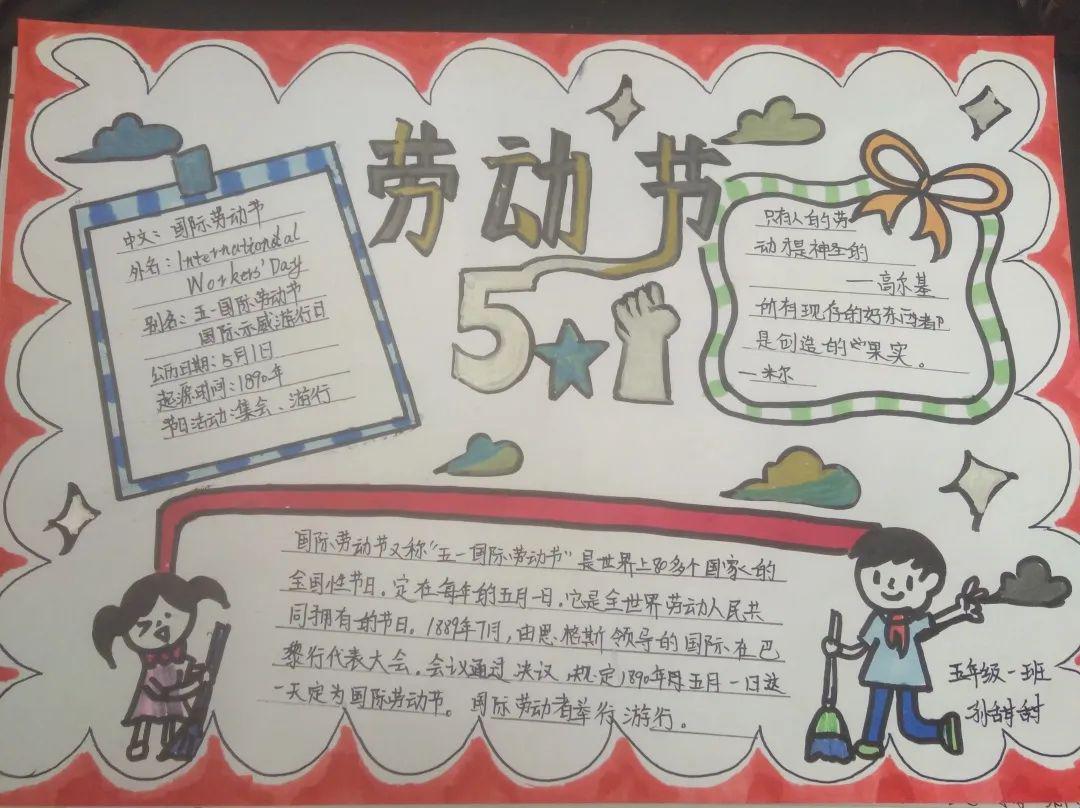 劳动节
5 1
中文：国际劳动节
外名：International
Workers' Day
别名：五一国际劳动节
国际示威游行日
公历日期：5月1日
起源时间：1890年
节日活动：集会、游行
只有人的劳
动才是神圣的
——高尔基
所有现存的好东西都
是创造的果实。
—米尔
国际劳动节又称"五一国际劳动节"是世界上80多个国家的
全国性节日。定在每年的五月一日。它是全世界劳动人民共
同拥有的节日。1889年7月，由恩格斯领导的国际在巴
黎行代表大会。会议通过决议，规定1890年五月一日这
一天定为国际劳动节。国际劳动者举行游行。
五年级一班
孙甜甜